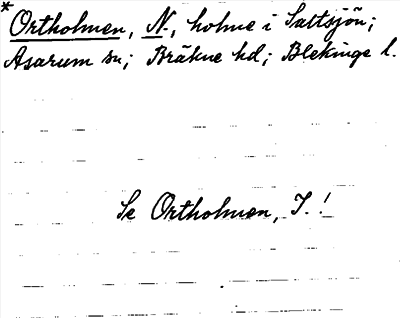 *Ortholmen, N., holme i Saltsjön;
Asarum sn; Bräkne hd; Blekinge l.
Se Ortholmen, I.!